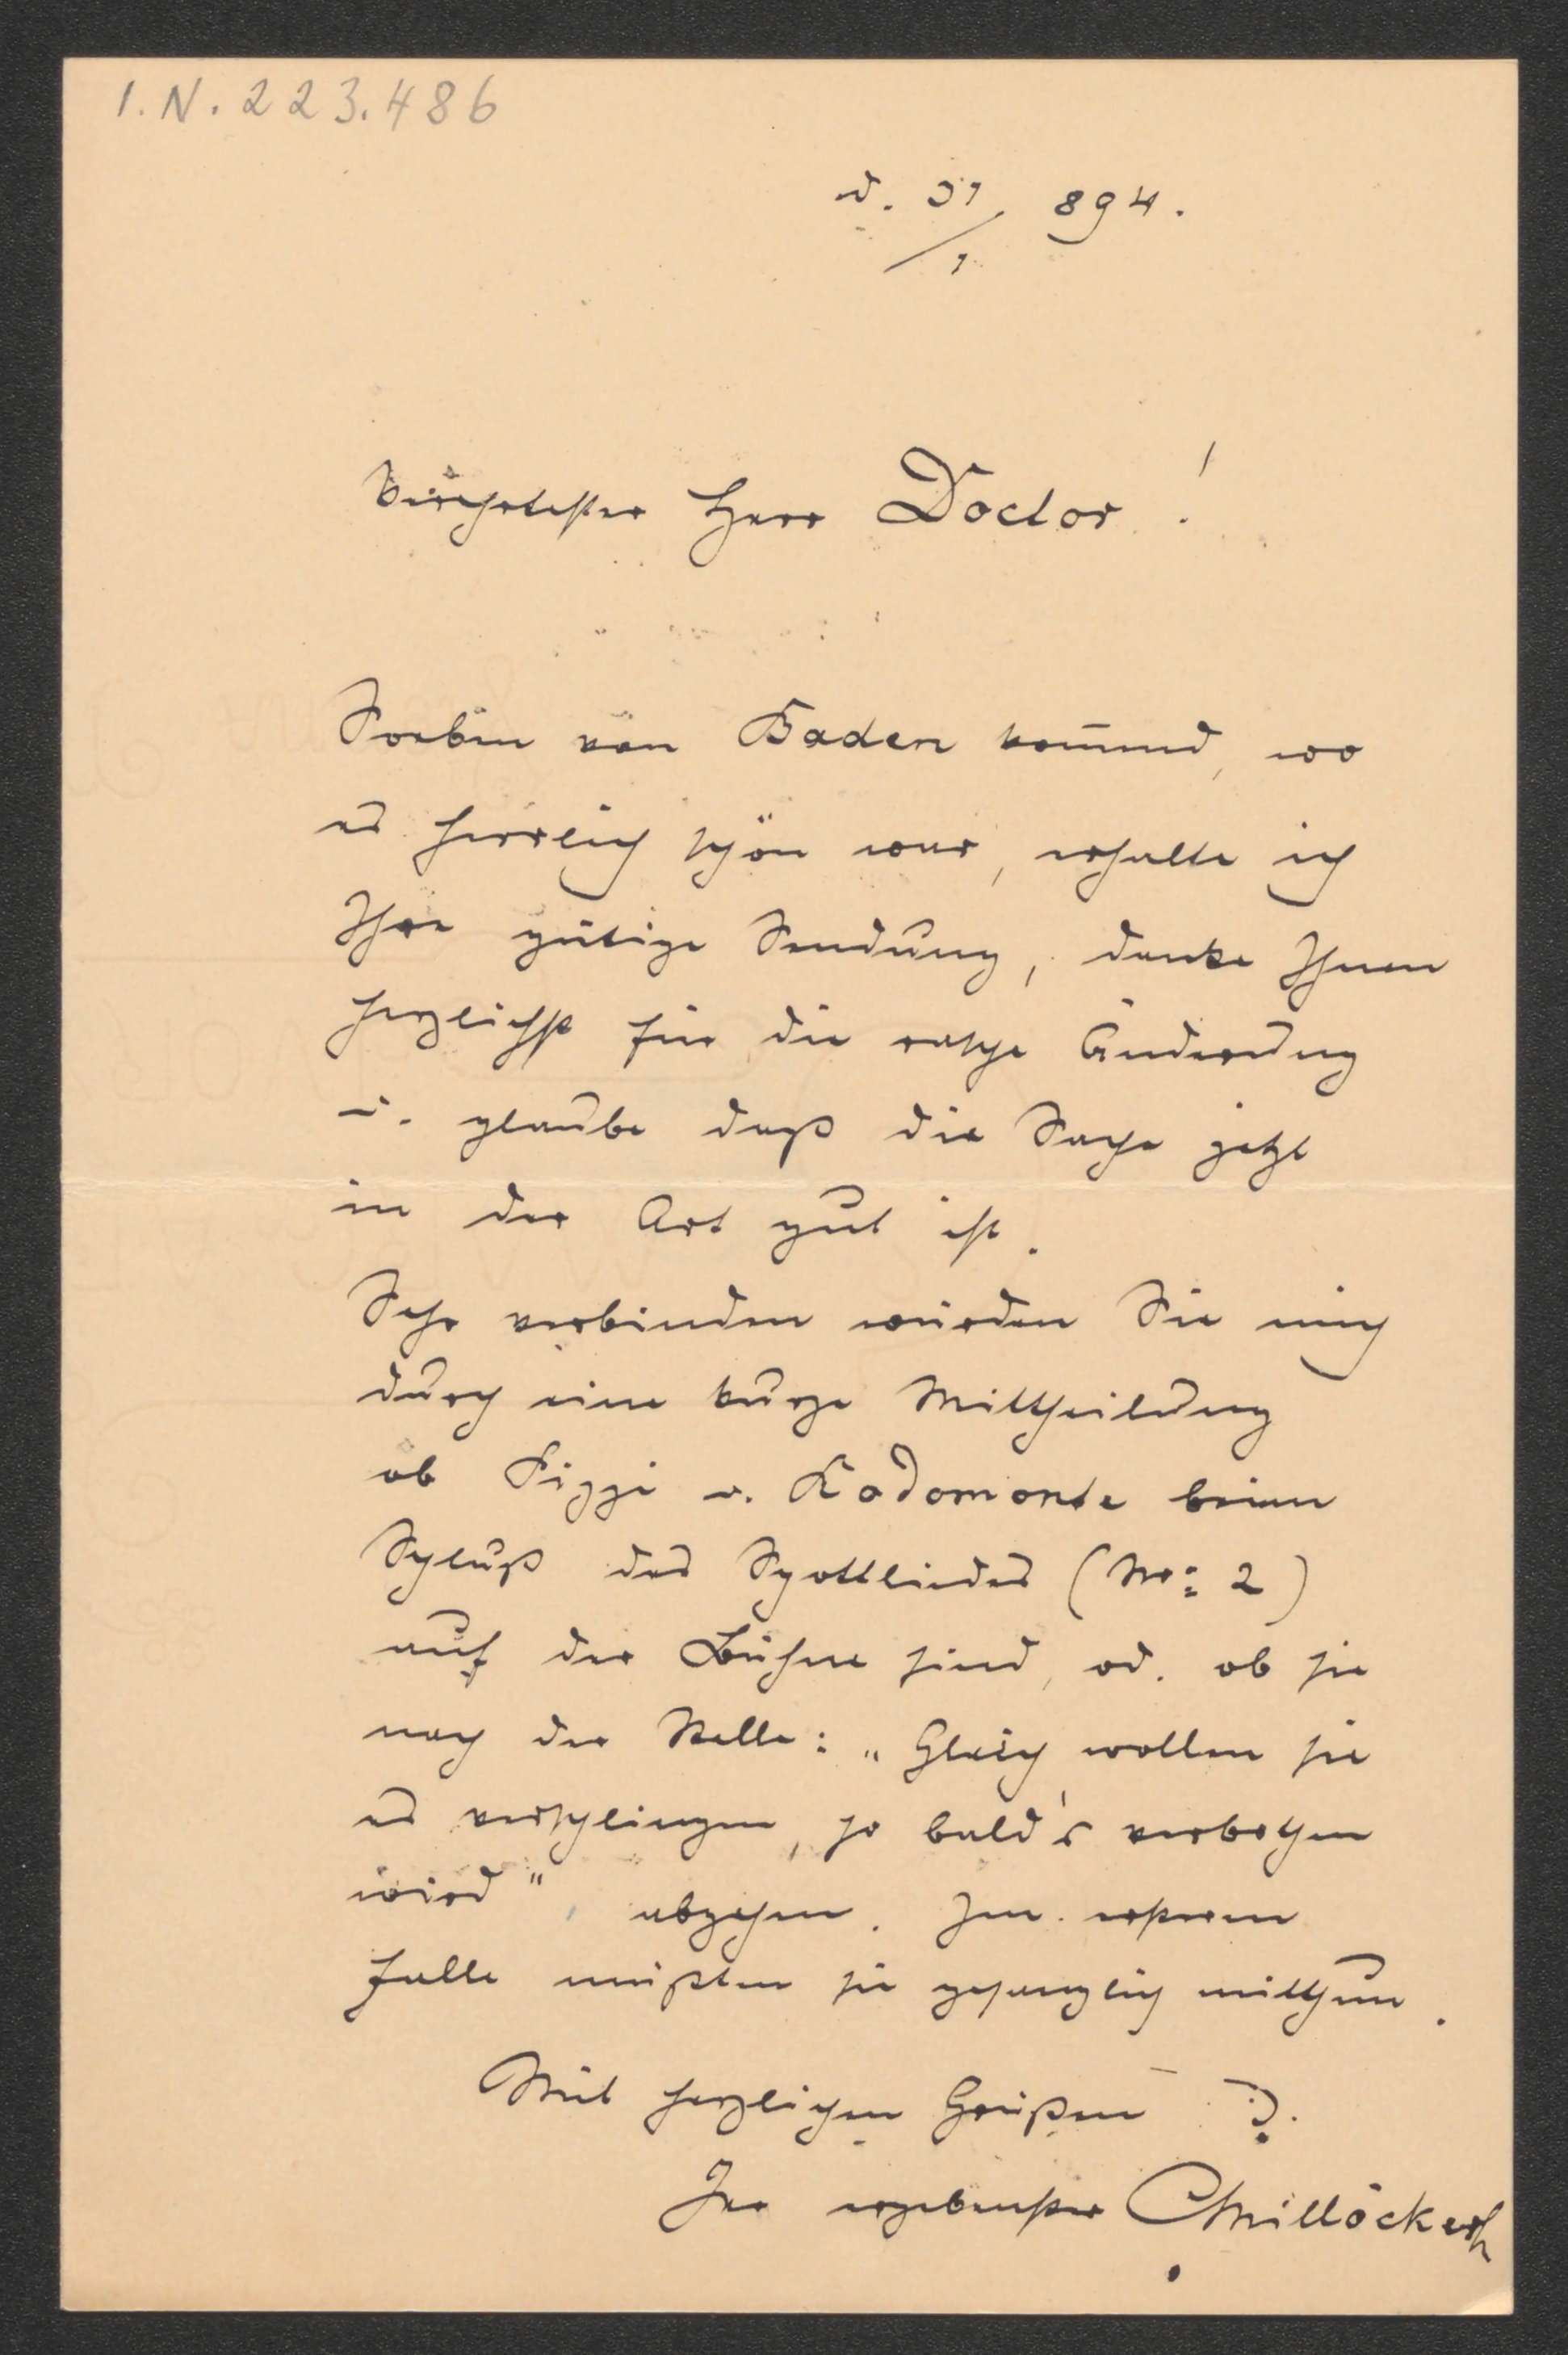 I.N. 223.486
d. 31/1 894.
Verehrtester Herr Doctor!
Soeben von Baden kom̄end, wo
es herrlich schön war, erhalte ich
Ihre gütige Sendung, danke Ihnen
herzlichst für die rasche Änderung
u. glaube daß die Sache jetzt
in der Art gut ist.
Sehr verbinden würden Sie mich
durch eine kurze Mittheilung
ob Pizzi u. Rodomonte beim
Schluß des Spottliedes (Nr: 2)
auf der Bühne sind, od. ob sie
nach der Stelle: „Gleich wollen sie
es verschlingen, so bald's verbothen
wird", abgehen. Im ersteren
Falle müßten sie gesanglich mitthun.
Mit herzlichen Grüßen
Ihr ergebenster CMillöcker